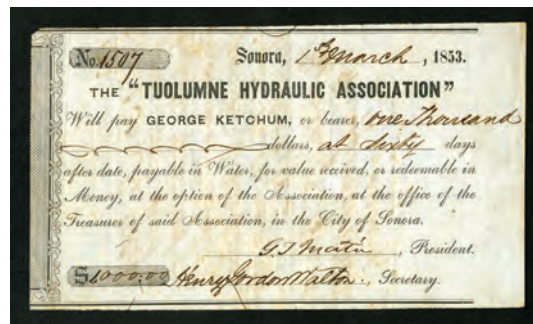 No. 1507 Sonora, 1st March, 1853.
THE "TUOLUMNE HYDRAULIC ASSOCIATION"
Will pay GEORGE KETCHUM, or bearer, one Thousand
dollars, at Sixty days
after date, payable in Water, for value received, or redeemable in
Money, at the option of the Association, at the office of the
Treasurer of said Association, in the City of Sonora.
G S Martin, President.
$1000.00 Henry Gordon Walton, Secretary.